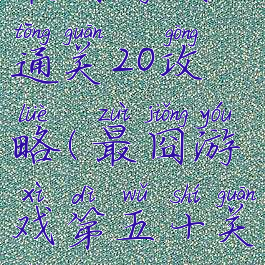 tōng guān gōng
通关20攻
lüè zuì jiǒng yóu
略(最囧游
xì dì wǔ shí guān
戏第五十关